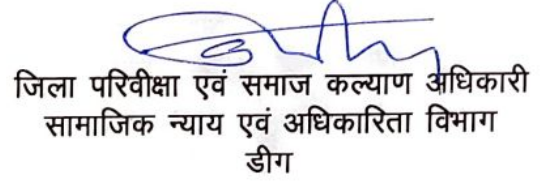 जिला परिवीक्षा एवं समाज कल्याण अधिकारी
सामाजिक न्याय एवं अधिकारिता विभाग
डीग